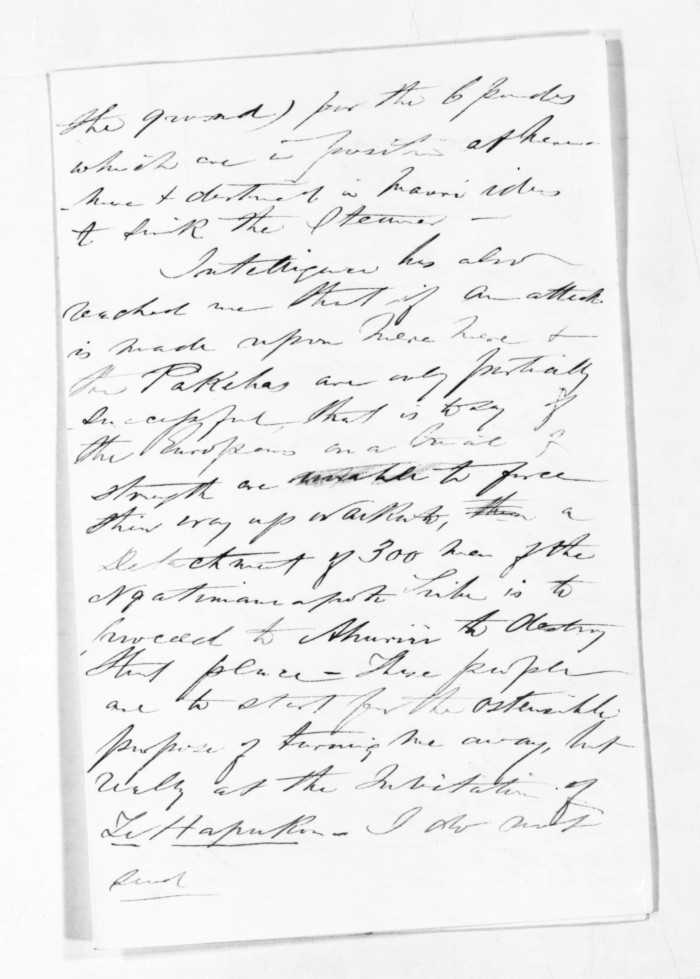 the ground) for the 6 pounders
which are in position at here-
-here & destined in Maori ideas
to sink the Steamer -
Intelligence has also
reached me that if an attack
is made upon here here &
the Pakehas are only partially
successful, that is to say if
the Europeans on a trial of
strength are unable to force
their way up Waikato, then a
Detachment of 300 men of the
Ngatimaniapoto Tribe is to
proceed to Ahuriri to destroy
that place - These people
are to start for the ostensible
purpose of turning me away, but
really at the Invitation of
Te Hapuku - I do not
send